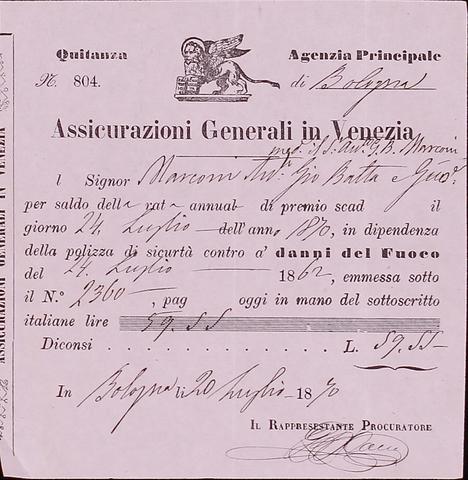 Quitanza
Agenzia Principale
N. 804.
di Bologna
Assicurazioni Generali in Venezia
G. B. Marconi
l Signor Marconi Gio Batta e
per saldo della rata annual di premio scad il
giorno 24 Luglio dell'anno 1870, in dipendenza
della polizza di sicurtà contro a' danni del Fuoco
del 24 Luglio 1862, emmessa sotto
il N.° 2360, pag oggi in mano del sottoscritto
italiane lire 59.55
Diconsi . . . . . . . . . . . . L. 59.55
In Bologna li 20 Luglio 1870
Il Rappresestante Procuratore
ASSICURAZIONI GENERALI IN VENEZIA